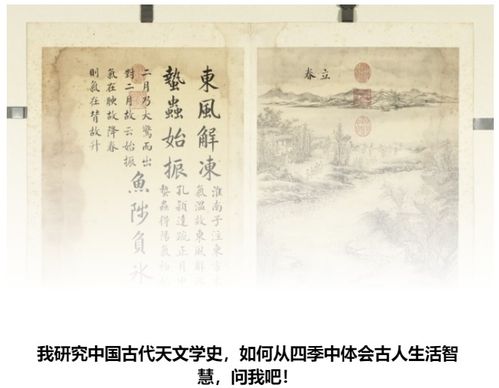 立春
東風解凍
淮南子注東方木
氣溫故東風解
蟄蟲始振
孔穎達疏正月中
蟄蟲得陽氣初
二月乃大驚而出
對二月故云始振
魚陟負冰
氣在腴故降春
則氣在背故升
我研究中国古代天文学史，如何从四季中体会古人生活智
慧，问我吧！